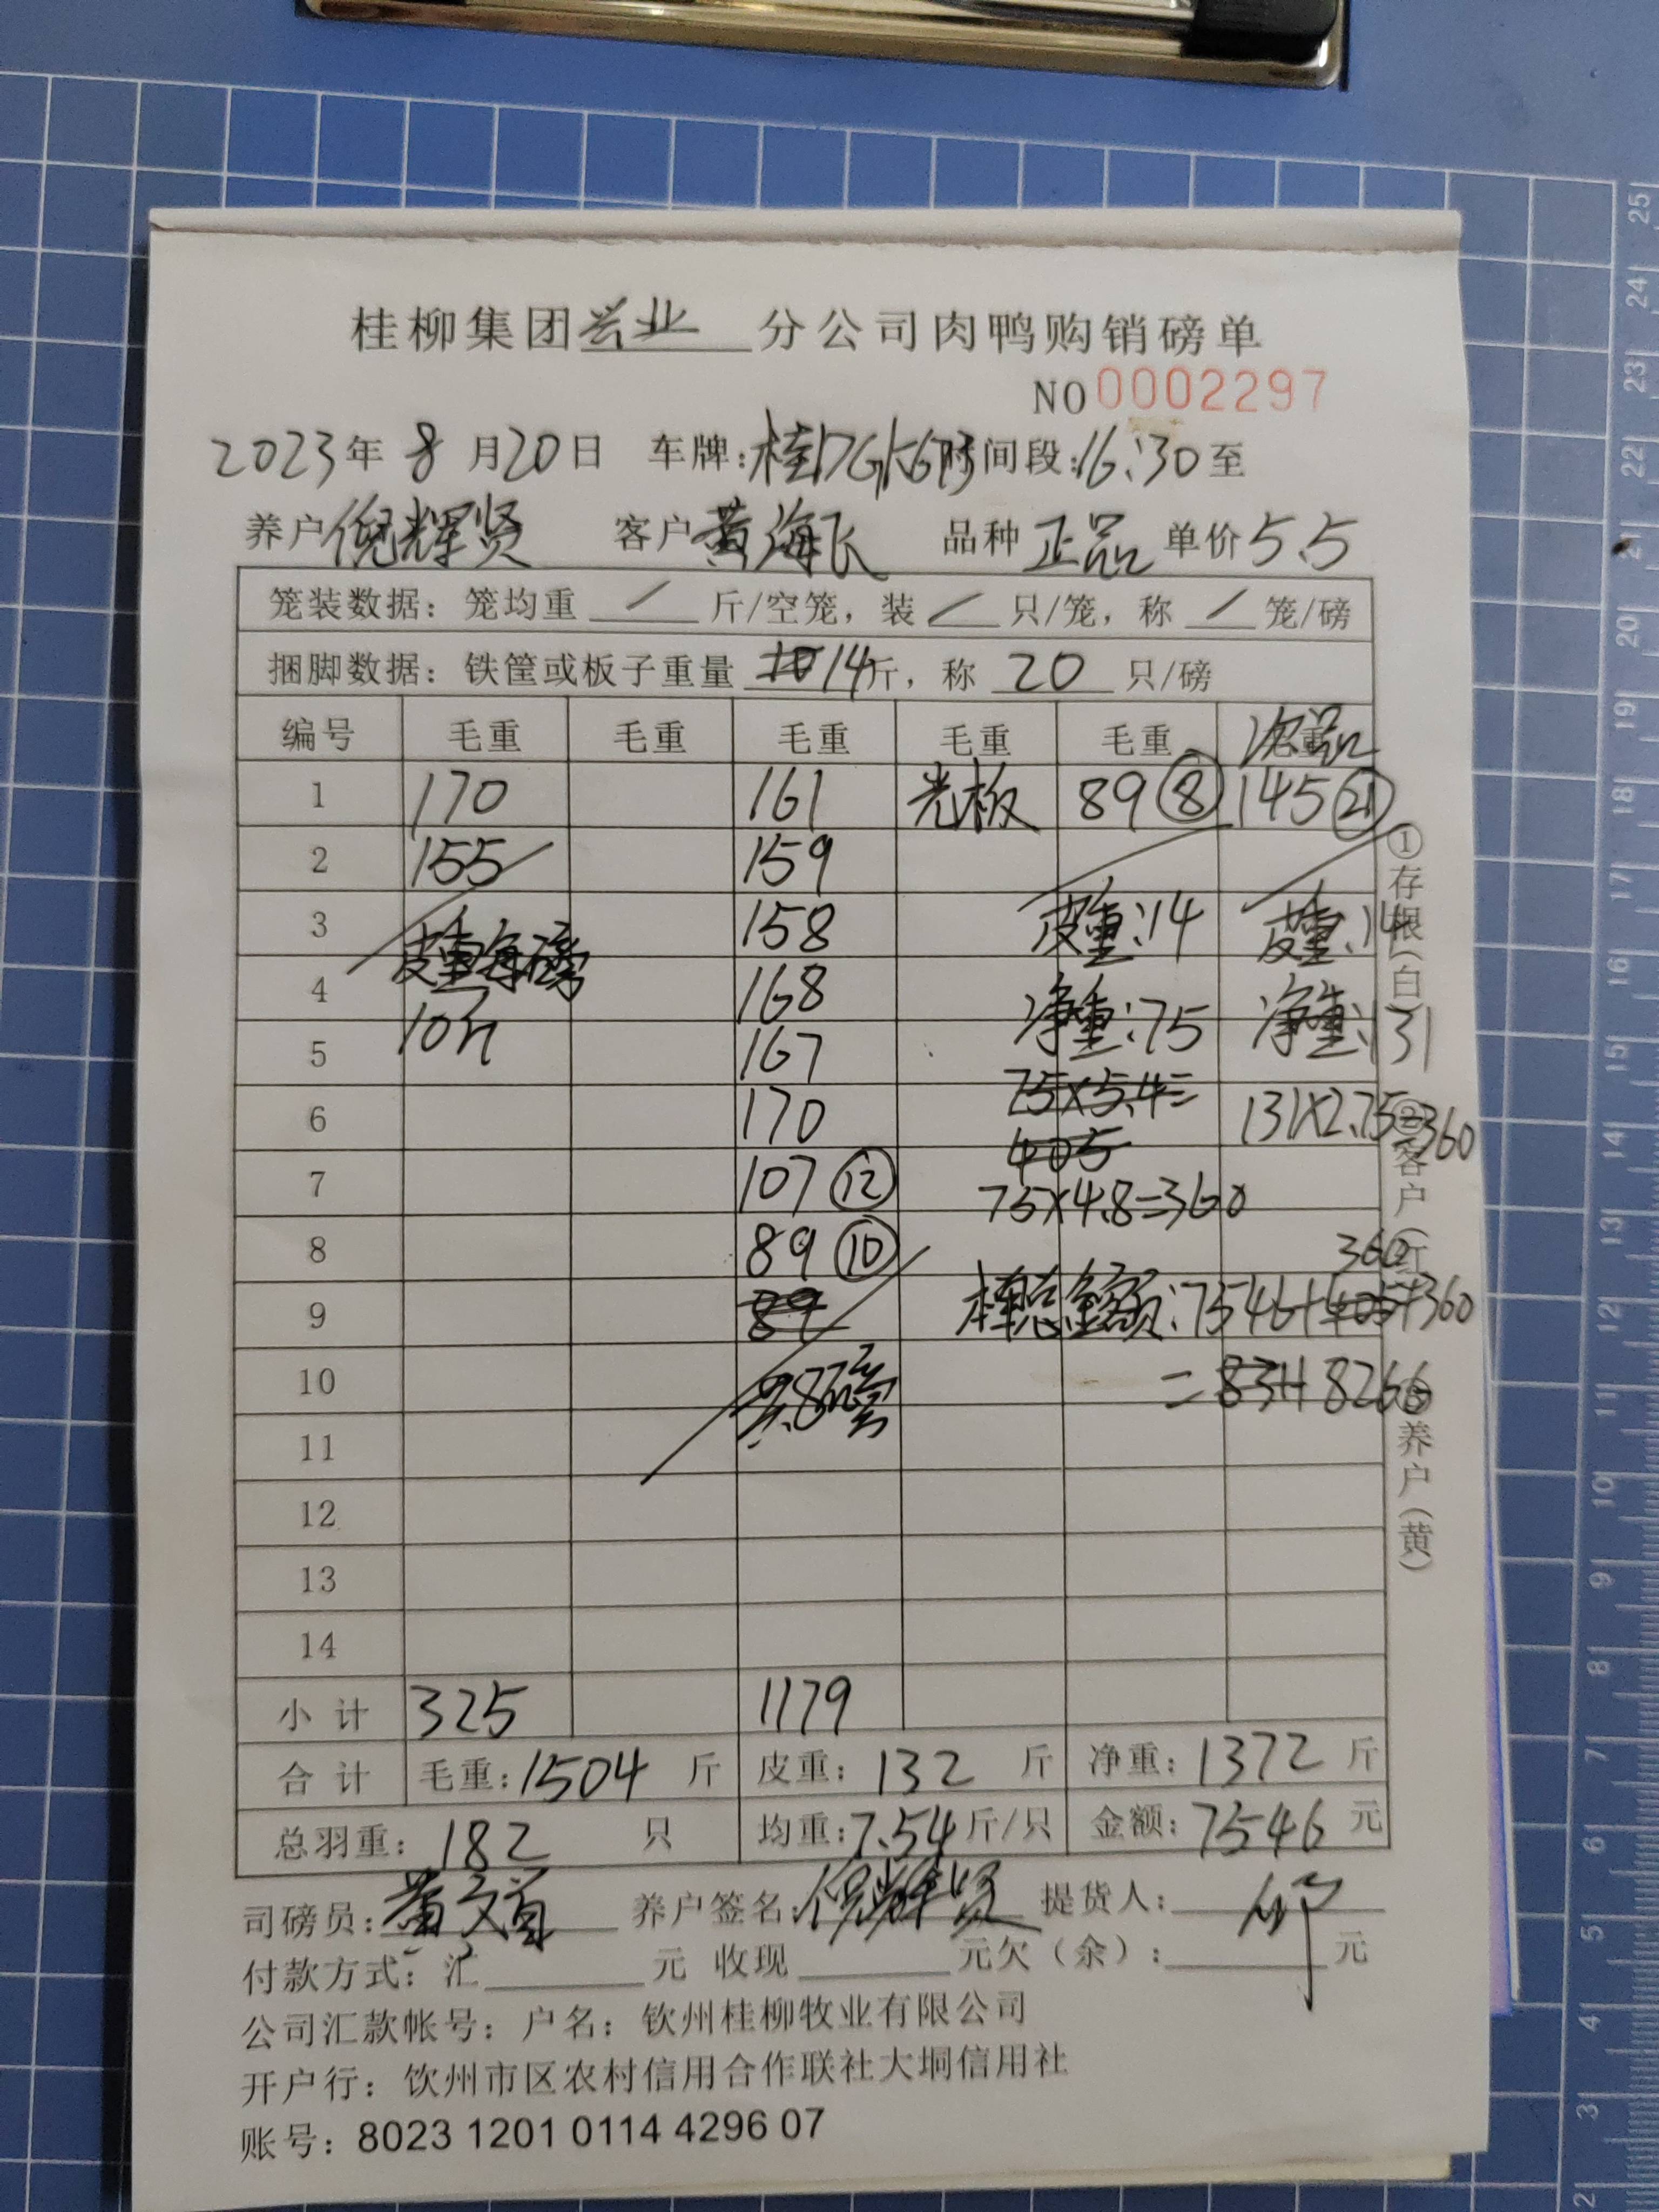 桂柳集团兴业分公司肉鸭购销磅单
NO 0002297
2023年 8月20日 车牌: 时间段:16:30至
养户倪辉贤 客户黄海飞 品种 正品 单价5.5
笼装数据：笼均重 / 斤/空笼，装 / 只/笼，称 / 笼/磅
捆脚数据：铁筐或板子重量 10 14斤，称 20 只/磅
编号 毛重 毛重 毛重 毛重 毛重 次品
1 170 161 光板 89⑧ 145㉑
2 155 159
3 158 皮重:14 皮重:14
皮重每磅
4 168 净重:75 净重:131
10斤
5 167
75×5.4=
6 170 131×2.75=360
405
7 107⑫ 75×4.8=360
8 89⑩ 360
9 89 本车总金额:7546+405+360
10 共8磅 =8311 8266
11
12
13
14
小计 325 1179
合计 毛重:1504 斤 皮重: 132 斤 净重:1372 斤
总羽重: 182 只 均重:7.54斤/只 金额:7546 元
司磅员: 养户签名:倪辉贤 提货人:
付款方式：汇 元 收现 元欠（余）: 元
公司汇款帐号：户名：钦州桂柳牧业有限公司
开户行：钦州市区农村信用合作联社大垌信用社
账号：8023 1201 0114 4296 07
①存根（白）
②客户（红）
养户（黄）
25
24
23
22
21
20
19
18
17
16
15
14
13
12
11
10
9
8
7
6
5
4
3
2